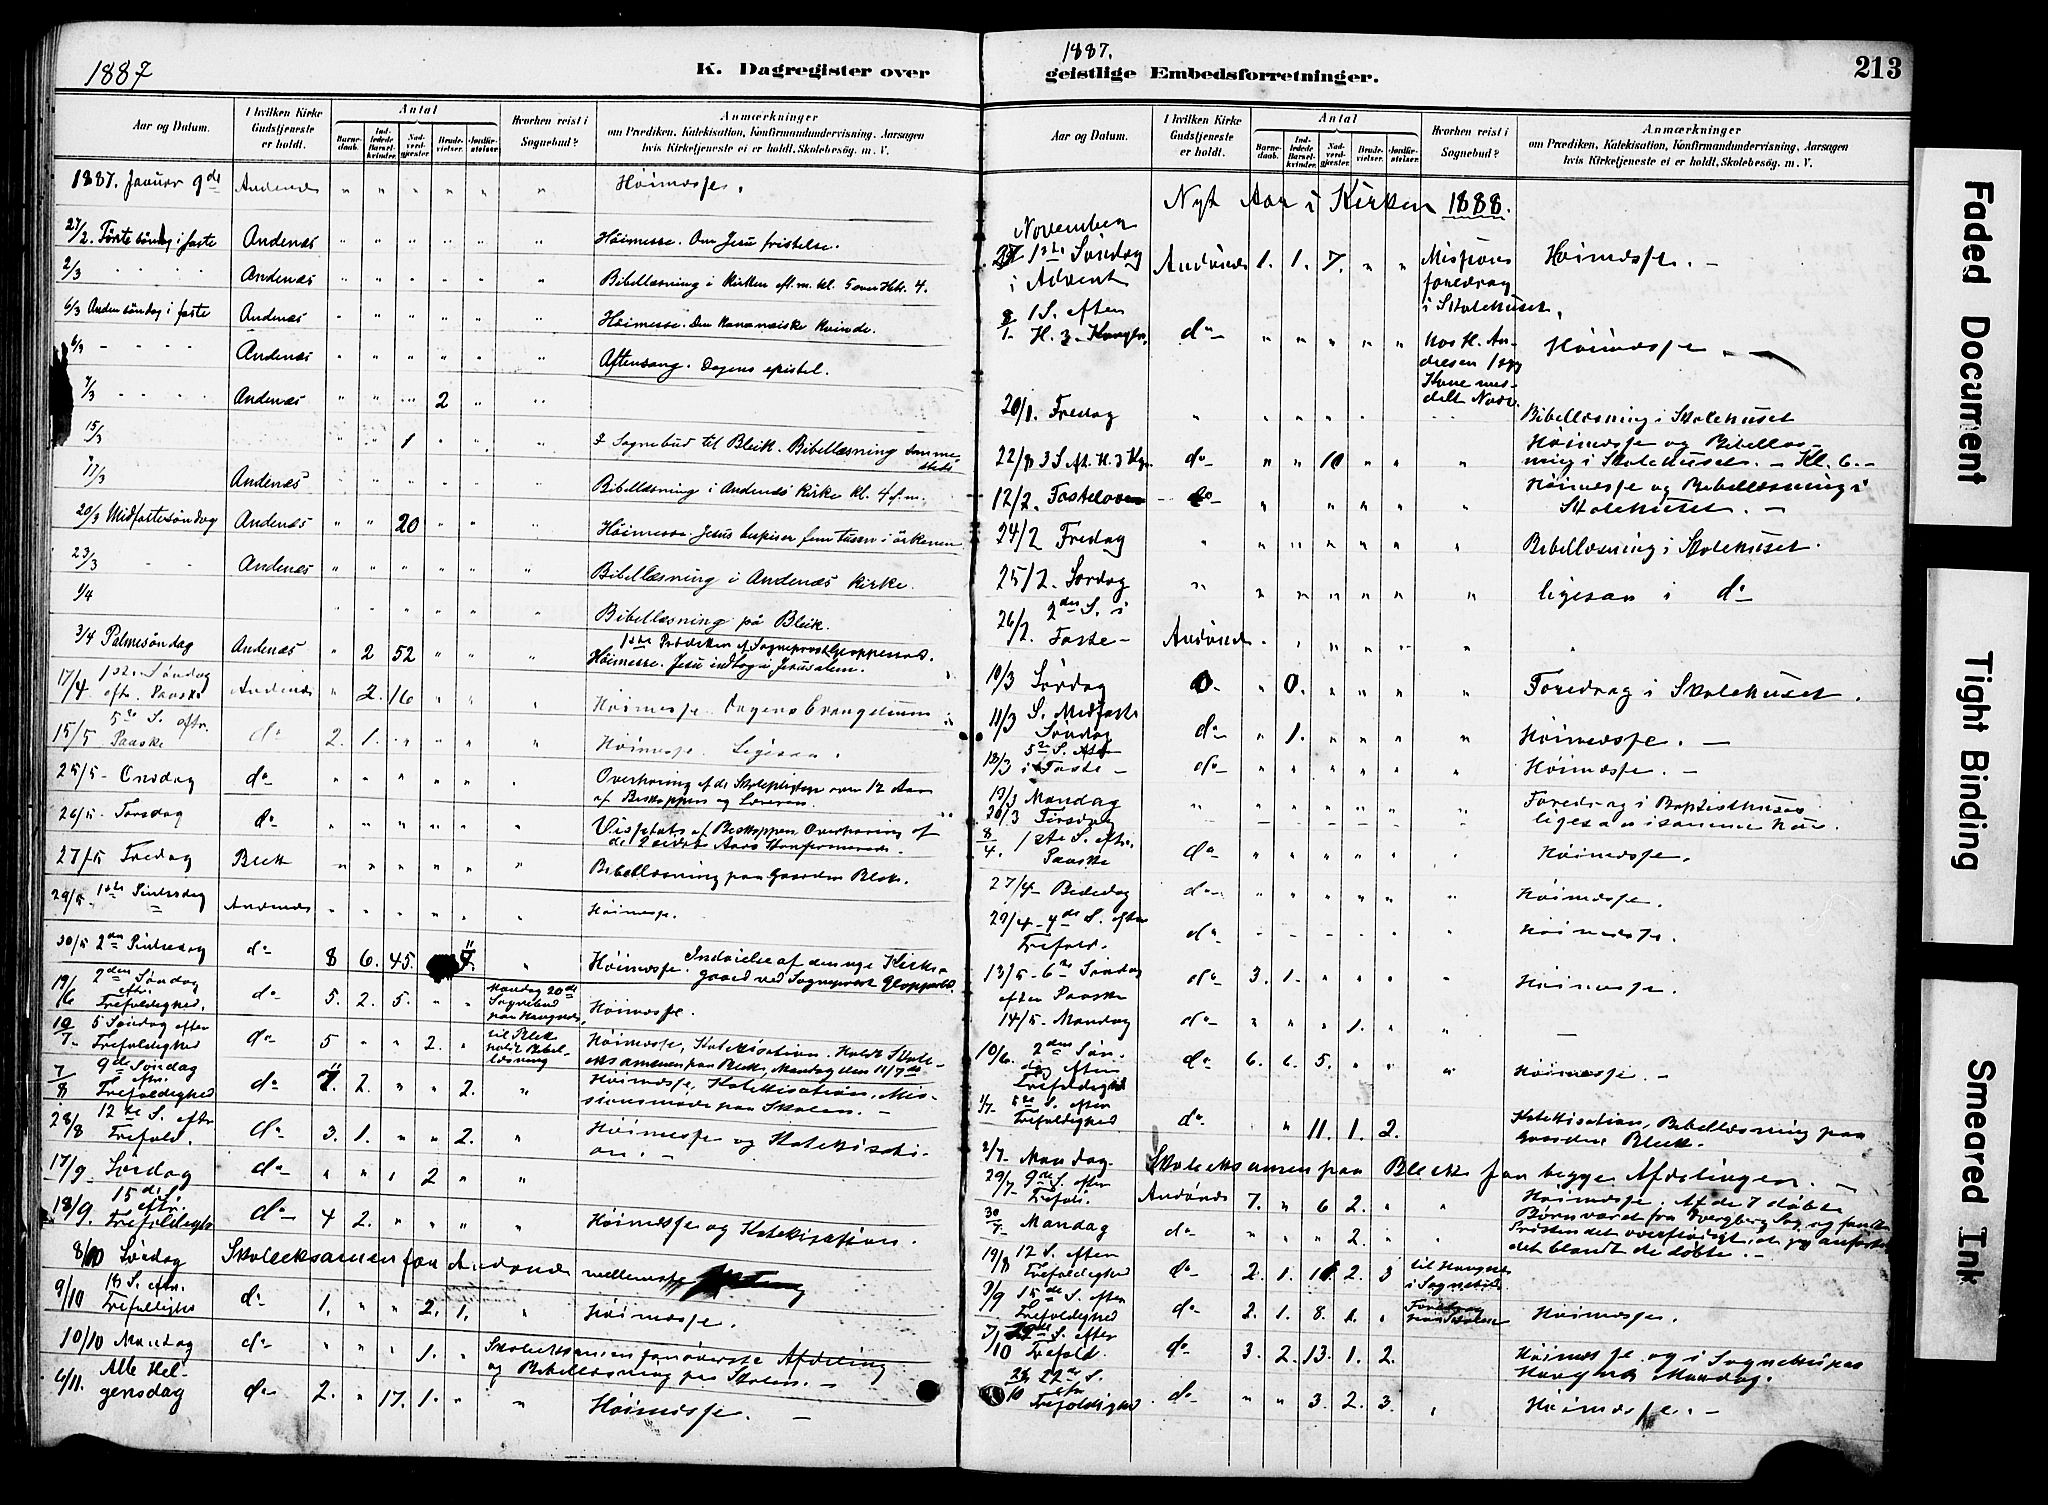 1887
K. Dagregister over
Aar og Datum.
I hvilken Kirke Gudstjeneste er holdt.
Antal
Barnedaab.
Indledede Barselkvinder.
Nadverdgjester.
Brudevielser.
Jordfæstelser.
Hvorhen reist i Sognebud?
Anmærkninger
om Prædiken, Katekisation, Konfirmandundervisning, Aarsagen
hvis Kirketjeneste ei er holdt, Skolebesög. m. V.
1887. Januar 9de Andenæs " " " " " " Höimesse.
27/2. Förste söndag i faste Andenæs " " " " " " Höimesse. Om Jesu fristelse.
2/3 " " " Andenæs " " " " " " Bibellæsning i Kirken eft.m. kl. 5 over Heb. 4.
6/3 Anden söndag i faste Andenæs " " " " " " Höimesse. Den kananæiske kvinde.
6/3 - - - Andenæs " " " " " " Aftensang. Dagens epistel.
7/3 - - - Andenæs " " " 2 " "
15/3 " " 1 " " " I Sognebud til Bleik. Bibellæsning sammesteds
17/3 Andenæs " " " " " " Bibellæsning i Andenæs kirke kl. 4 e.f.m.
20/3 Midfastesöndag Andenæs " " 20 " " " Höimesse Jesus bespiser fem tusen i örkenen
23/3 - - Andenæs " " " " " " Bibellæsning i Andenæs kirke.
1/4 " " " " " " Bibellæsning på Bleik.
3/4 Palmesöndag Andenæs " 2 52 " " " Höimesse. Jesu indtog i Jerusalem.
17/4 1ste Söndag eft. Paaske Andenæs " 2. 16 " " " Höimesse Dagens Evangelium
15/5 5te S. eftr. Paaske do 2. 1. " " " " Höimesse. Ligesaa.
25/5 - Onsdag do " " " " " " Overhöring af de Skolepligtige over 12 Aar
af Biskoppen og Læreren.
26/5 - Torsdag do " " " " " " Visitats af Biskoppen Overhöring af
de 2 sidste Aars Konfirmerede.
27/5 Fredag Bleik " " " " " " Bibellæsning paa Gaarden Bleik.
29/5 - 1ste Pintsedag Andenæs " " " " " " Höimesse.
30/5 2den Pintsedag do 8 6. 45. 7. " Höimesse. Indvielse af den nye Kirke-
gaard ved Sogneprest Gloppestad.
19/6 2den Söndag eftr. Trefoldighed. do 5. 2. 5. " " Mandag 20de Sognebud Höimesse.
10/7 5 Söndag efter Trefoldighed do 5 " " 2. " til Bleik holdt Bibellæsning Höimesse, Katekisation. Holdt Skole-
eksamen paa Bleik, Mandag den 11/7de
7/8 9de Söndag eftr. Trefoldighed do 7. 2. " " 2. " Höimesse, Katekisation, Mis-
sionsmöde paa Skolen. -
28/8 12te S. eftr Trefold. do 3. 1. " " 2. " Höimesse og Katekisati-
on. -
17/9. Lördag do " " " 2 "
18/9. 15de eftr. Trefoldigh. do 4 2. " " " " Höimesse og Katekisation.
8/10 Lördag Skoleeksamen for Andenæs mellemste
9/10 18 S. eftr. Trefoldighed do 1. " " 2. 1. " Höimesse.
10/10 Mandag do " " " 1. " Skoleeksamen for överste Afdeling
og Bibellæsning paa Skolen. -
6/11. Alle Helgensdag do 2. " 17. 1. " " Höimesse. -
1887.
geistlige Embedsforretninger.
213
Aar og Datum.
I hvilken Kirke Gudstjeneste er holdt.
Antal
Barnedaab.
Indledede Barselkvinder.
Nadverdgjester.
Brudevielser.
Jordfæstelser.
Hvorhen reist i Sognebud?
Anmærkninger
om Prædiken, Katekisation, Konfirmandundervisning, Aarsagen
hvis Kirketjeneste ei er holdt, Skolebesög. m. V.
Nyt Aar i Kirken 1888.
November
27 1ste Söndag i Advent Andönes 1. 1. 7. " " Missions foredrag i Skolehuset. Höimesse. -
8/1. 1 S. efter H. 3 Konger. do " " " " " Hos H. Andresen syg Kone meddelt Nadv. Höimesse. -
20/1. Fredag " " " " " Bibellæsning i Skolehuset
22/1 3 S. eft. H. 3 Kgr. do " " 10 " " " Höimesse og Bibellæs-
ning i Skolehuset. - Kl. 6. -
12/2. Fastelavn do " " " " " " Höimesse og Bebellæsning i
Skolehuset. -
24/2 Fredag " " " " " " Bibellæsning i Skolehuset.
25/2. Lördag " " " " " " ligesaa i do
26/2. 2den S. i Faste - Andönes " " " " "
10/3 Lördag " 0. " " " " Foredrag i Skolehuset.
11/3 S. Midfaste Söndag do " 1. " " " " Höimesse. -
18/3 5te S. i Faste - do " " " " " " Höimesse. -
19/3 Mandag " " " " " Foredrag i Baptisthuset
20/3 Tirsdag - - - - - ligesaa i samme Hus.
8/4. 1ste S. eftr. Paaske do " " " " " " Höimesse.
27/4 - Bededag do " " " " " " Höimesse.
29/4 - 4de S. efter Trefold. do - - - - - " Höimesse.
13/5 - 6te Söndag efter Paaske do 3. 1. " " " " Höimesse.
14/5 - Mandag do " " " 1. " " -
10/6. 2den Söndag efter Trefoldighed do 6. 6. 5. " " " Höimesse. -
1/7 - 5te S. efter Trefoldighed. do " " 11. 1. 2. Katekisation, Bebellæsning paa
Gaarden Bleik.
2/7 - Mandag. Skoleeksamen paa Bleik for begge Afdelinger. -
29/7 - 9de S. efter Trefold. Andönes 7. " 6 2. " " Höimesse. Af de 7 döbte
30/7. Mandag do " " " 2. " "
det blandt de döbte. -
19/8 12 S. efter Trefoldighed do 2. 1. 2. 3 til i Sognebud
9/9 15de S. efter Trefoldighed do 2. 1. 8. 1. " Foredrag paa Skolen Höimesse.
7/10 S. efter Trefold. do 3. 2. 13. 1. 2. Höimesse og i Sognebud paa
Mandag.
22de S. eftr Trefoldighed do " " 3. 2. 3. " Höimesse. -
Faded Document
Tight Binding
Smeared Ink